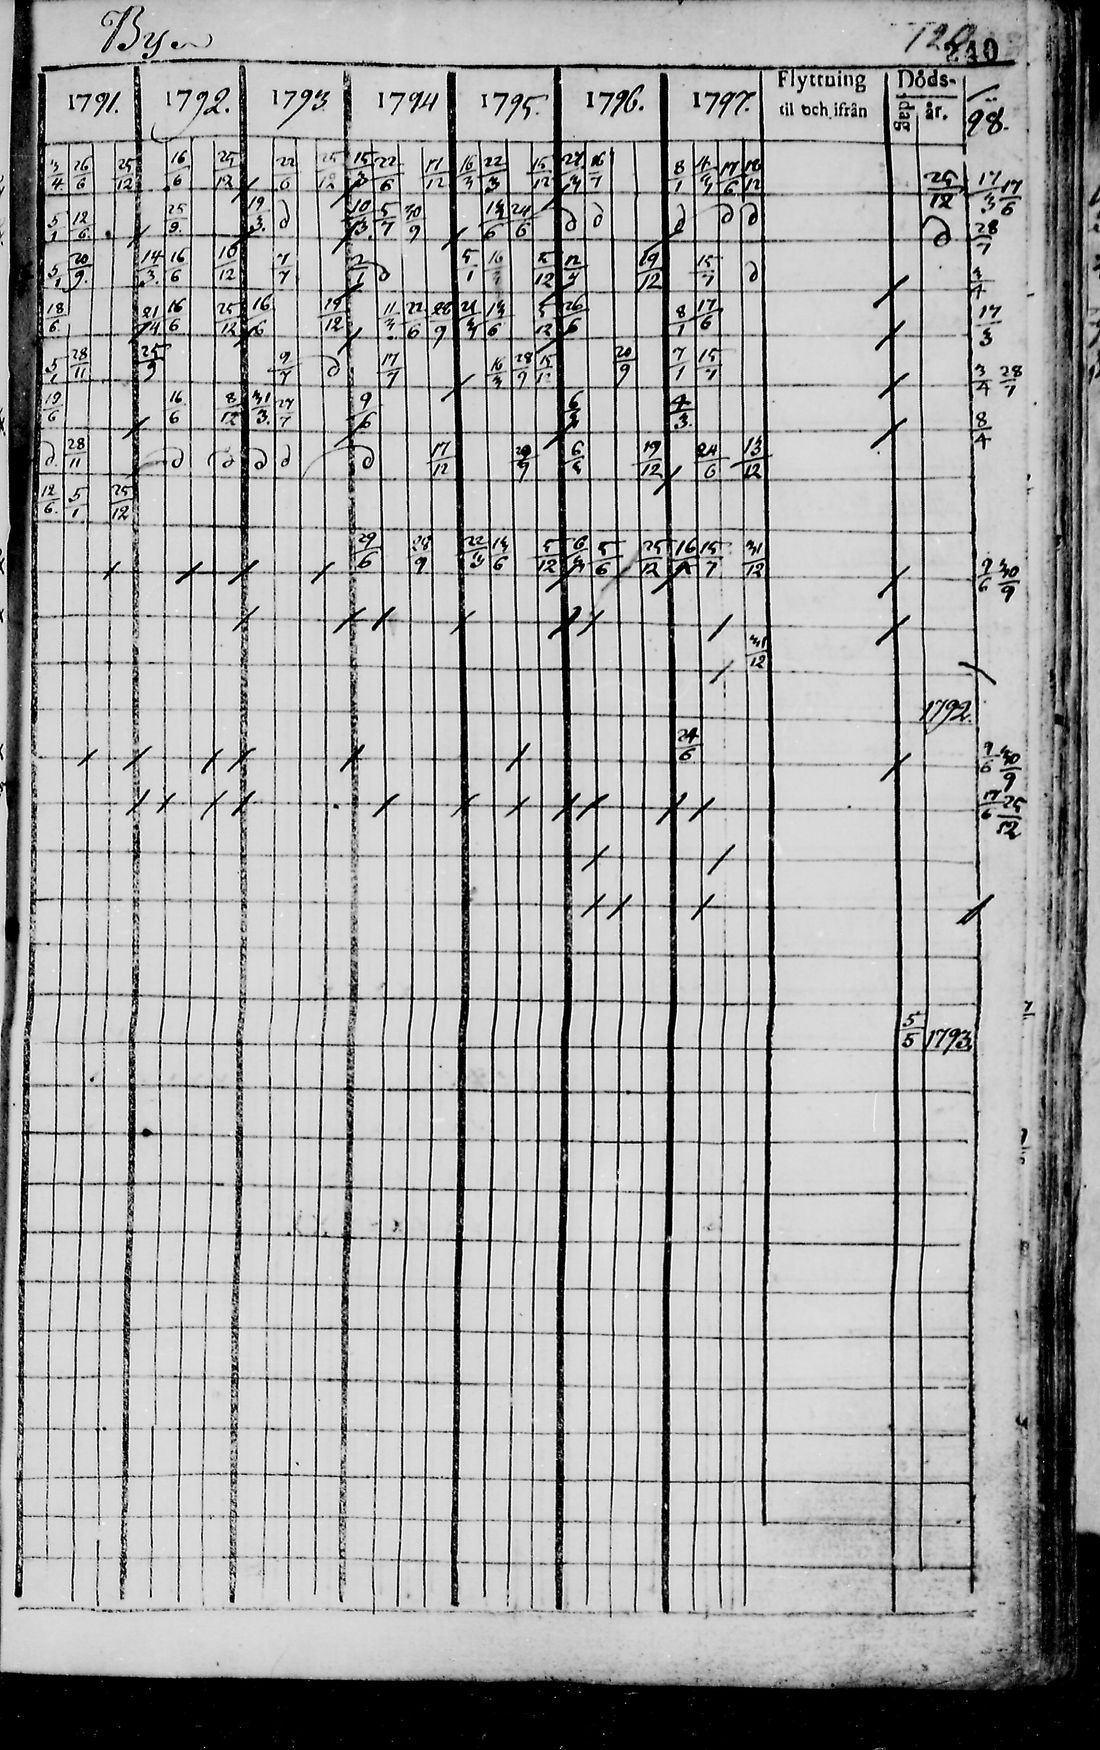 Byen
240
1791. 1792. 1793 1794 1795. 1796. 1797. Flyttning til och ifrån Döds- dag år. 98.
3/4 26/6 25/12 16/6 25/12 22/6 25/12 15/3 22/6 17/12 16/3 22/3 15/12 16/7 8/1 4/3 17/6 25/12 17/3 17/6
5/1 12/6 25/9. 19/3. d 10/3. 5/7 30/9 24/6 d d d d d d 28/7
5/1 20/9. 14/3. 16/6 16/12 7/7 2/1 d 5/1 16/3 5/12 12/3 19/12 15/7 d 3/4
18/6 16/6 25/12 16/6 19/12 11/3 22/6 28/9 13/6 5/12 26/6 8/1 17/6 17/3
5/1 28/11 25/9 9/7 d 17/7 16/3 28/9 15/12 20/9 7/1 15/7 3/4 28/7
19/6 16/6 8/12 31/3. 27/7 9/6 4/3. 8/4
d. 28/11 d d d d d 17/12 6/3 19/12 24/6 13/12
12/6. 5/1. 25/12
29/6 28/9 22/3 13/6 5/12 6/3 5/6 25/12 15/7 31/12 9/6 30/9
31/12
1792.
24/6 9/6 30/9
17/6 25/12
5/5 1793